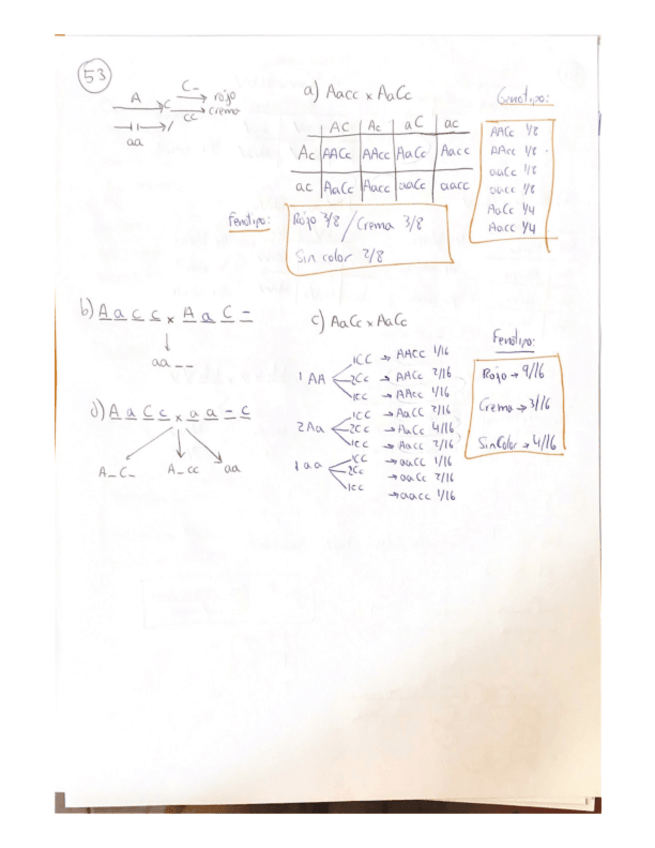 53
A C C_ rojo
cc crema
aa
a) Aacc x AaCc
AC Ac aC ac
Ac AACc AAcc AaCc Aacc
ac AaCc Aacc aaCc aacc
Genotipo:
AACc 1/8
AAcc 1/8
aaCc 1/8
aacc 1/8
AaCc 1/4
Aacc 1/4
Fenotipo:
Rojo 3/8 / Crema 3/8
Sin color 2/8
b) A a c c x A a C =
aa _ _
c) AaCc x AaCc
1 AA
1CC → AACC 1/16
2Cc → AACc 2/16
1cc → AAcc 1/16
2 Aa
1CC → AaCC 2/16
2Cc → AaCc 4/16
1cc → Aacc 2/16
1 aa
1CC → aaCC 1/16
2Cc → aaCc 2/16
1cc → aacc 1/16
Fenotipo:
Rojo → 9/16
Crema → 3/16
Sin Color → 4/16
d) A a C c x a a = c
A_C_ A_cc aa